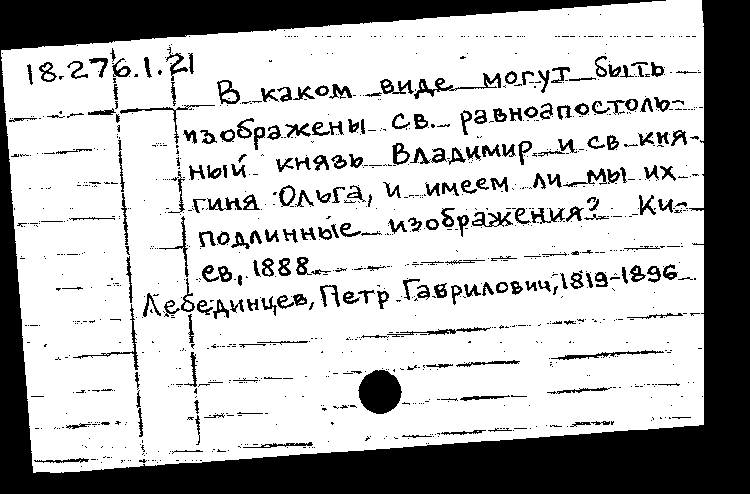 18.276.1.21
В каком виде могут быть
изображены св. равноапостоль-
ный князь Владимир и св. кня-
гиня Ольга, и имеем ли мы их
подлинные изображения? Ки-
ев, 1888
Лебединцев, Петр Гаврилович, 1819-1896